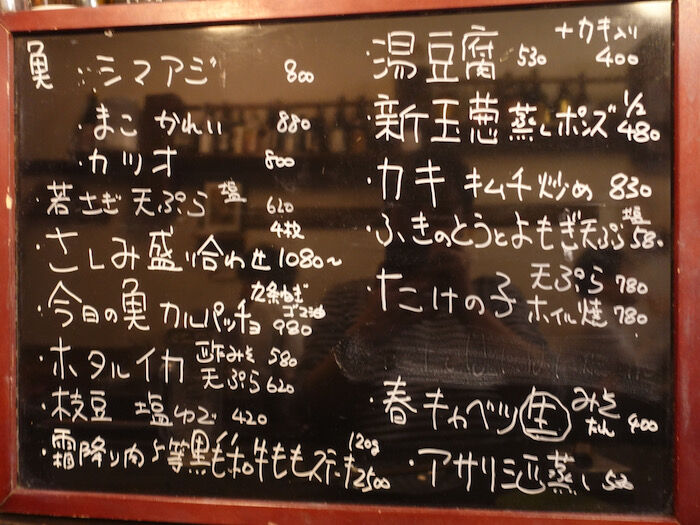 魚 ・シマアジ 800
・まこ かれい 880
・カツオ 800
・若さぎ 天ぷら 塩 620
・さしみ盛り合わせ 4枚 1080〜
・今日の魚 カルパッチョ 九条ねぎ ゴマ油 980
・ホタルイカ 酢みそ 580
天ぷら 620
・枝豆 塩ゆで 420
・霜降り肉 5等黒毛和牛ももステーキ 120g 2500
・湯豆腐 530 +カキ入り 400
・新玉葱 蒸しポンズ 1/2 480
・カキ キムチ炒め 830
・ふきのとうとよもぎ天ぷら 塩 580
・たけの子 天ぷら 780
ホイル焼 780
・春キャベツ 生 みそ だれ 400
・アサリ酒蒸し 580